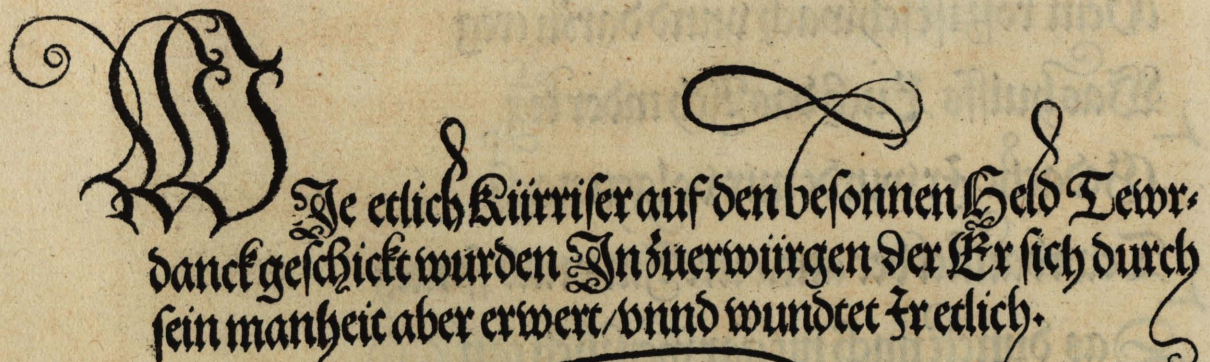 WIe etlich Kürriser auf den besonnen Held Tewr-
danck geschickt wurden In zuerwürgen der Er sich durch
sein manheit aber erwert/vnnd wundtet Ir etlich.